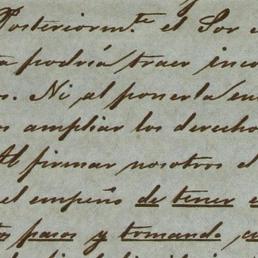 Posteriorm.te el Sor
podría traer inco
Ni al ponerla en
ampliar los derecho
Al firmar nosotros el
el empeño de tener
pasos y tomando